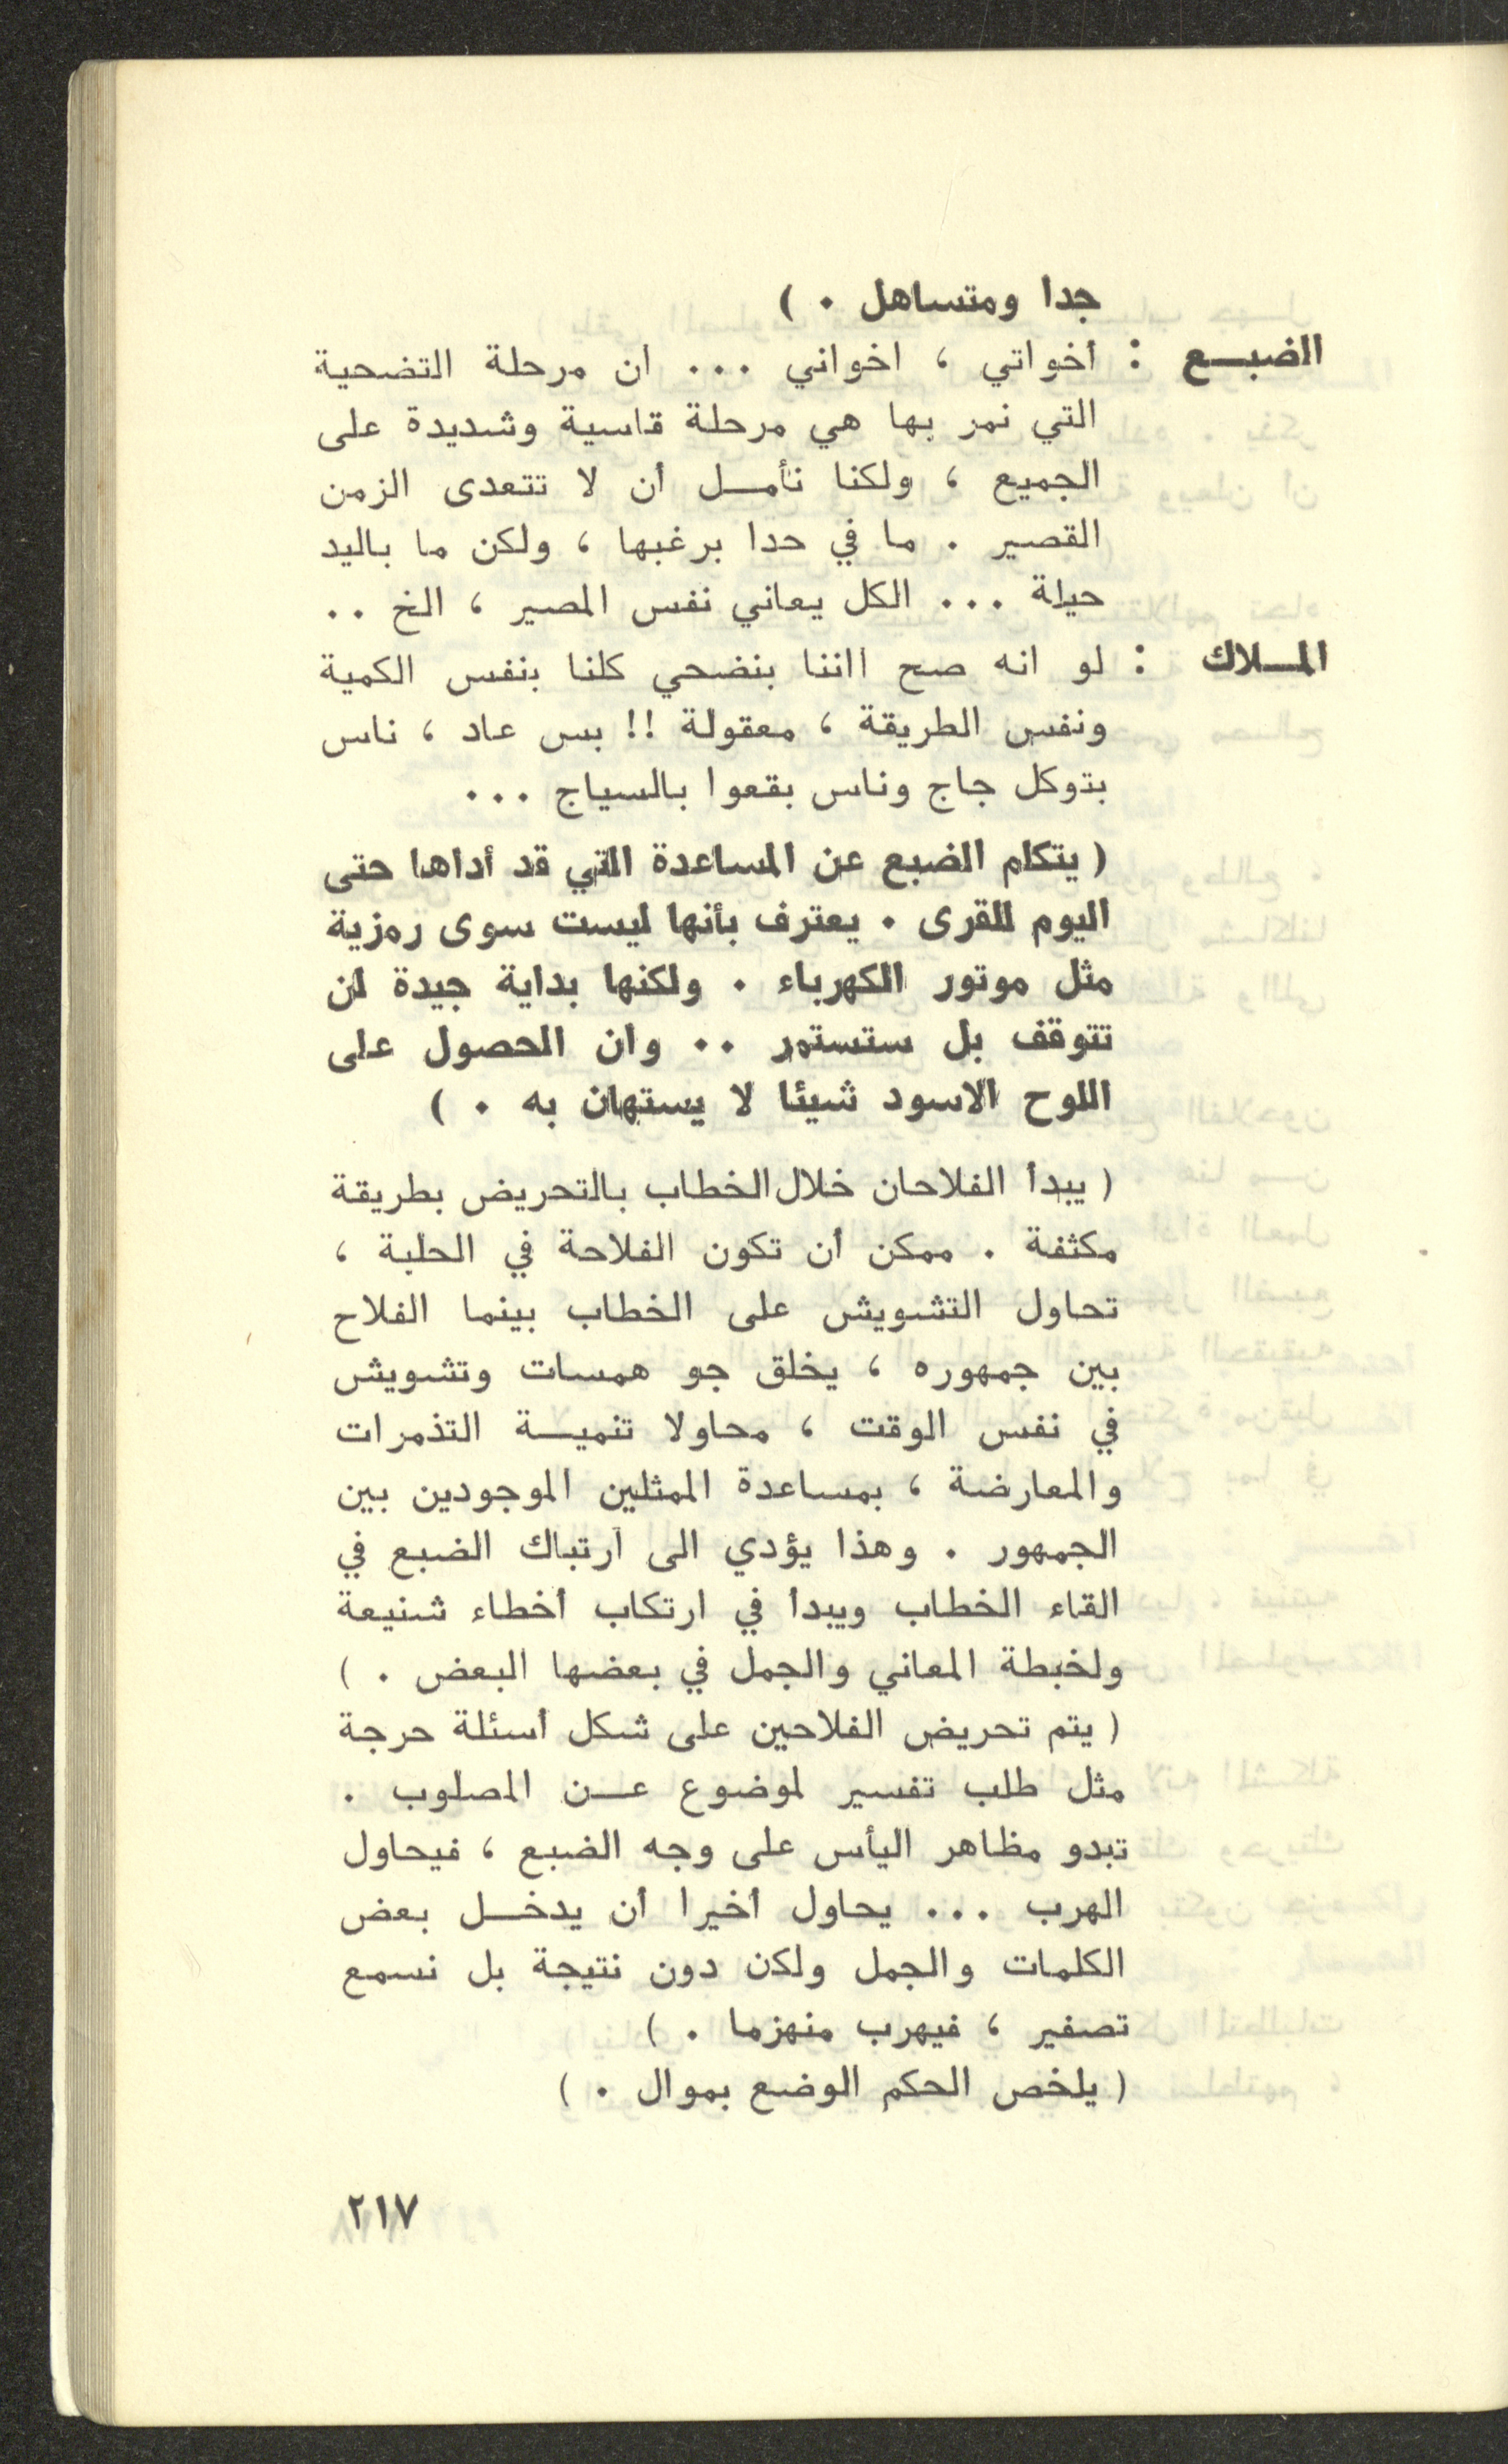 جدا ومتساهل . )
الضبـــع : أخواتي ، اخواني ... ان مرحلة التضحية
التي نمر بها هي مرحلة قاسية وشديدة على
الجميع ، ولكنا نأمـــل أن لا تتعدى الزمن
القصير . ما في حدا برغبها ، ولكن ما باليد
حيلة ... الكل يعاني نفس المصير ، الخ ..
المــلاك : لو انه صح اننا بنضحي كلنا بنفس الكمية
ونفس الطريقة ، معقولة !! بس عاد ، ناس
بتوكل جاج وناس بقعوا بالسياج ...
( يتكلم الضبع عن المساعدة التي قد أداها حتى
اليوم للقرى . يعترف بأنها ليست سوى رمزية
مثل موتور الكهرباء . ولكنها بداية جيدة لن
تتوقف بل ستستمر .. وان الحصول على
اللوح الاسود شيئا لا يستهان به . )
( يبدأ الفلاحان خلال الخطاب بالتحريض بطريقة
مكثفة . ممكن أن تكون الفلاحة في الحلبة ،
تحاول التشويش على الخطاب بينما الفلاح
بين جمهوره ، يخلق جو همسات وتشويش
في نفس الوقت ، محاولا تنميـــة التذمرات
والمعارضة ، بمساعدة الممثلين الموجودين بين
الجمهور . وهذا يؤدي الى ارتباك الضبع في
القاء الخطاب ويبدأ في ارتكاب أخطاء شنيعة
ولخبطة المعاني والجمل في بعضها البعض . )
( يتم تحريض الفلاحين على شكل أسئلة حرجة
مثل طلب تفسير لموضوع عـــن المصلوب .
تبدو مظاهر اليأس على وجه الضبع ، فيحاول
الهرب ... يحاول أخيرا أن يدخـــل بعض
الكلمات والجمل ولكن دون نتيجة بل نسمع
تصفير ، فيهرب منهزما . )
( يلخص الحكم الوضع بموال . )
٢١٧